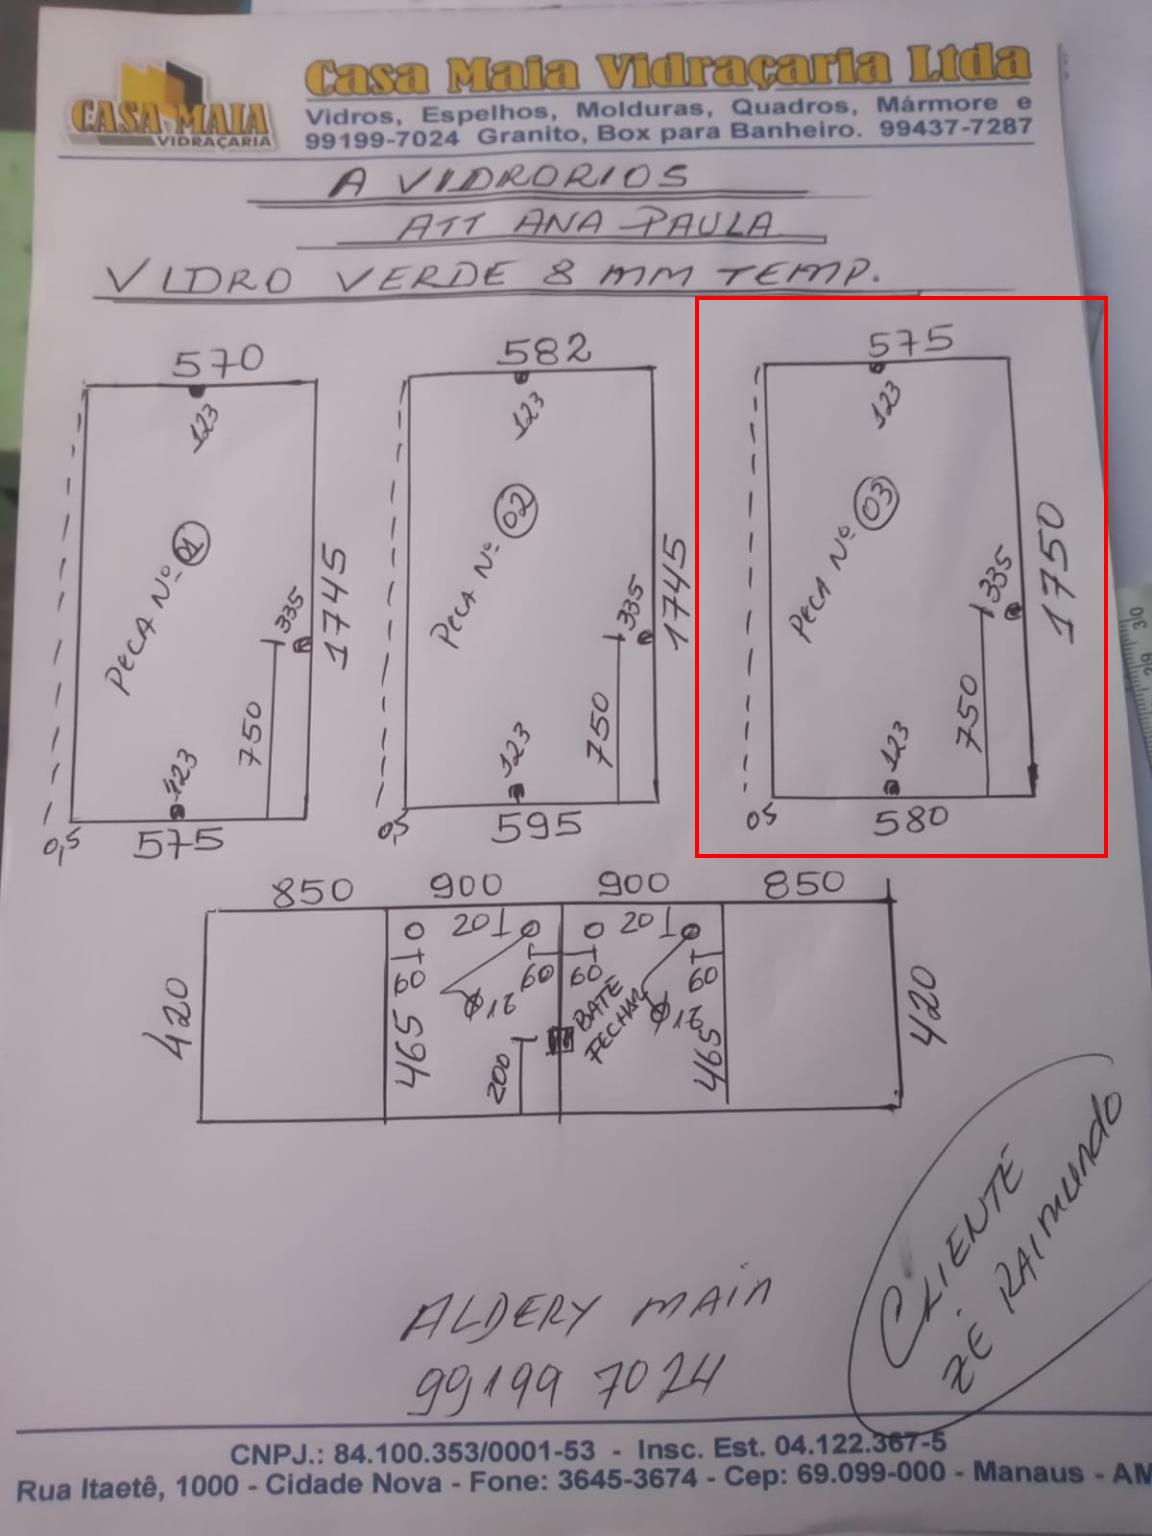 CASA MAIA
VIDRAÇARIA
Casa Maia Vidraçaria Ltda
Vidros, Espelhos, Molduras, Quadros, Mármore e
99199-7024 Granito, Box para Banheiro. 99437-7287
A VIDRORIOS
ATT ANA PAULA
VIDRO VERDE 8 MM TEMP.
570
123
PECA Nº 01
335
1745
750
123
0,5
575
582
123
PECA Nº 02
335
1745
750
123
0,5
595
575
123
PECA Nº 03
335
1750
750
123
05
580
850 900 900 850
420
201
60
60
Ø12
465
200
201
60
60
Ø12
465
BATE
FECHA
420
CLIENTE
ZÉ RAIMUNDO
ALDERY MAIA
99199 7024
CNPJ.: 84.100.353/0001-53 - Insc. Est. 04.122.367-5
Rua Itaetê, 1000 - Cidade Nova - Fone: 3645-3674 - Cep: 69.099-000 - Manaus - AM
30
29